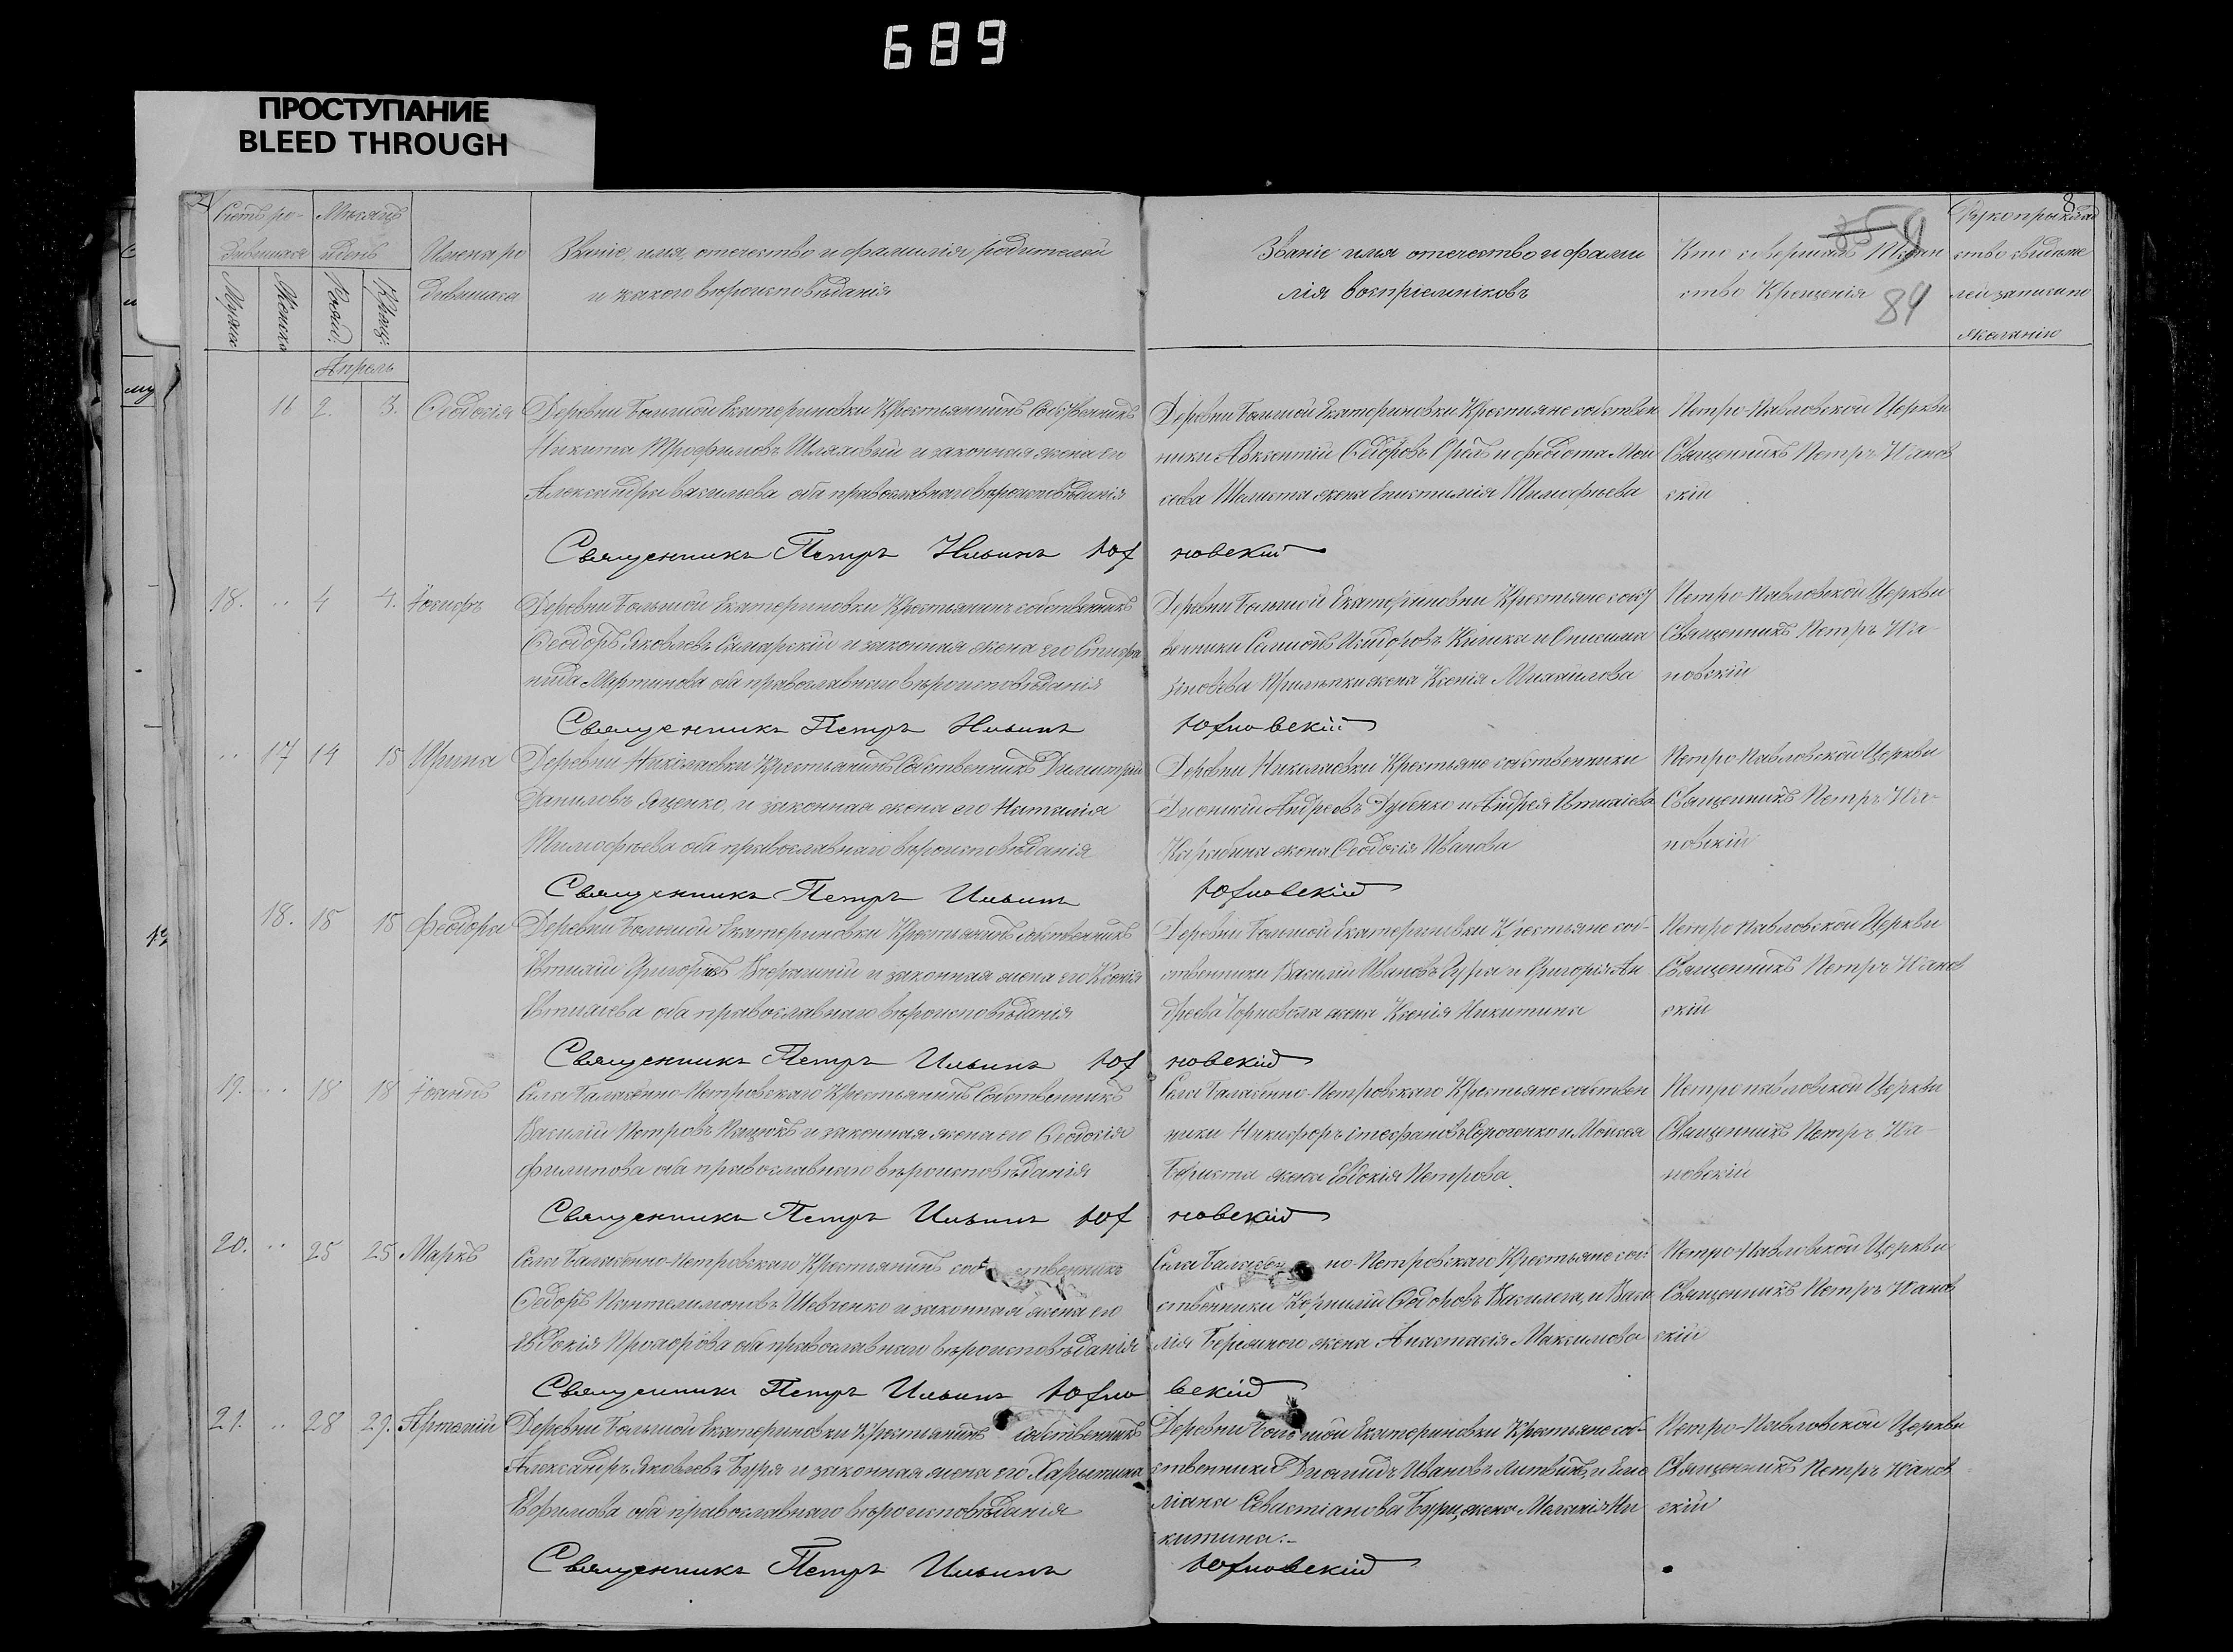 689
ПРОСТУПАНИЕ
BLEED THROUGH
Счетъ ро-
дившихся
Мужск:
Женска
Мѣсяцъ
и день
Рожд:
Крещ:
Имена ро
дившихся
Званіе, имя, отечество и фамилія родителей
и какого вѣроисповѣданія
Званіе имя отечество и фами
лія воспріемниковъ
Кто совершалъ Таин
ство Крещенія
84
8
Рукоприклад
ство свидѣте
лей записи по
желанію
Апрѣль
16 2. 3. Ѳеодосія
Деревни Большой Екатериновки Крестьянинъ Собственникъ
Никита Трофимовъ Шляховый и законная жена его
Александра Васильева оба православнаго вѣроисповѣданія
Деревни Большой Екатериновки Крестьяне собствен
ники Авксентій Ѳедоровъ и Ѳедота Мои
сеева жена Епистимія Тимофеева
Петро-Павловской Церкви
Священникъ Петръ
скій
Священникъ Петръ Ильинъ
новскій
18. " 4 4. Іосифъ
Деревни Большой Екатериновки Крестьянинъ собственникъ
Ѳеодоръ Яковлевъ Самарскій и законная жена его Стефа
нида Мартинова оба православнаго вѣроисповѣданія
Деревни Большой Екатериновки Крестьяне собст
венники Исидоровъ и Онисима
Зиновьева жена Ксенія Михайлова
Петро-Павловской Церкви
Священникъ Петръ
новскій
Священникъ Петръ Ильинъ
" 17 14 15 Ирина
Деревни Николаевки Крестьянинъ Собственникъ Димитрій
Даниловъ Яценко, и законная жена его Наталія
Тимофеева оба православнаго вѣроисповѣданія
Деревни Николаевки Крестьяне собственники
Андреевъ и Андрея Евтихіева
Карабина жена Ѳеодосія Иванова
Петро-Павловской Церкви
Священникъ Петръ
новскій
Священникъ Петръ Ильинъ
18. 15 15 Феодора
Деревни Большой Екатериновки Крестьянинъ собственникъ
Евтихій Григорьевъ и законная жена его Ксенія
Евтихіева оба православнаго вѣроисповѣданія
Деревни Большой Екатериновки Крестьяне соб-
ственники Василій Ивановъ и Григорія Ан
дреева жена Ксенія Никитина
Петро Павловской Церкви
Священникъ Петръ
скій
Священникъ Петръ Ильинъ
новскій
19. " 18 18 Іоаннъ
Села Балабенно-Петровскаго Крестьянинъ Собственникъ
Василій Петровъ Пацюкъ и законная жена его Ѳеодосія
Филипова оба православнаго вѣроисповѣданія
Села Балабенно-Петровскаго Крестьяне собствен
ники Никифоръ Стефановъ и Моисея
жена Евдокія Петрова
Петро павловской Церкви
Священникъ Петръ
новскій
Священникъ Петръ Ильинъ
новскій
20. " 25 25 Маркъ
Села Балабенно-Петровскаго Крестьянинъ собственникъ
Ѳедоръ Пантелимоновъ Шевченко и законная жена его
Евдокія Прохорова оба православнаго вѣроисповѣданія
Села Балабенно-Петровскаго Крестьяне соб
ственники Корнилій Ѳедоровъ и Васи
лія жена Анастасія Максимова
Петро-Павловской Церкви
Священникъ Петръ
скій
Священникъ Петръ Ильинъ
вскій
21. " 28 29. Артемій
Деревни Большой Екатериновки Крестьянинъ собственникъ
Александръ Яковлевъ Буря и законная жена его Харитина
Ефимова оба православнаго вѣроисповѣданія
Деревни Большой Екатериновки Крестьяне соб-
ственники Диомидъ Ивановъ Литвинъ, и Еми
ліана Севастіанова Бури, жена Меланія Ни
китина:-
Петро-Павловской Церкви
Священникъ Петръ
скій
Священникъ Петръ Ильинъ